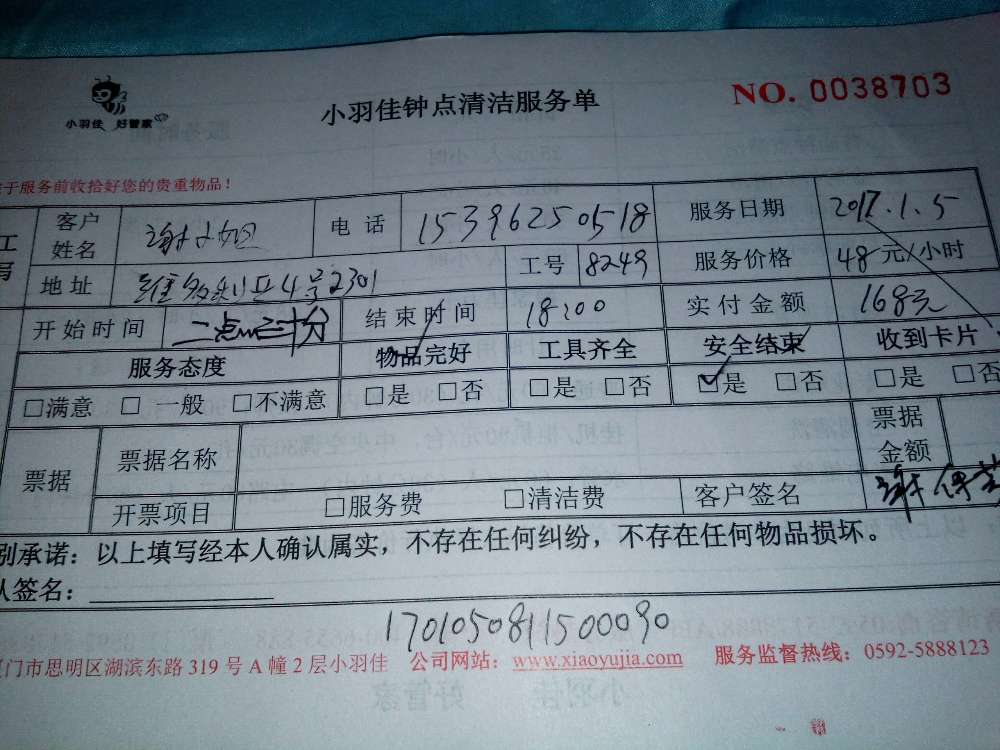 小羽佳 好管家
小羽佳钟点清洁服务单
NO. 0038703
于服务前收拾好您的贵重物品！
客户姓名 谢小姐 电话 15396250518 服务日期 2017.1.5
地址 4号2301 工号 8249 服务价格 48元/小时
开始时间 二点三十分 结束时间 18:00 实付金额 168元
服务态度 物品完好 工具齐全 安全结束 收到卡片
□满意 □一般 □不满意 □是 □否 □是 □否 ☑是 □否 □是 □否
票据 票据名称 票据金额
开票项目 □服务费 □清洁费 客户签名 谢
别承诺：以上填写经本人确认属实，不存在任何纠纷，不存在任何物品损坏。
人签名：
1701050811500090
门市思明区湖滨东路 319 号 A 幢 2 层小羽佳 公司网站：www.xiaoyujia.com 服务监督热线：0592-5888123